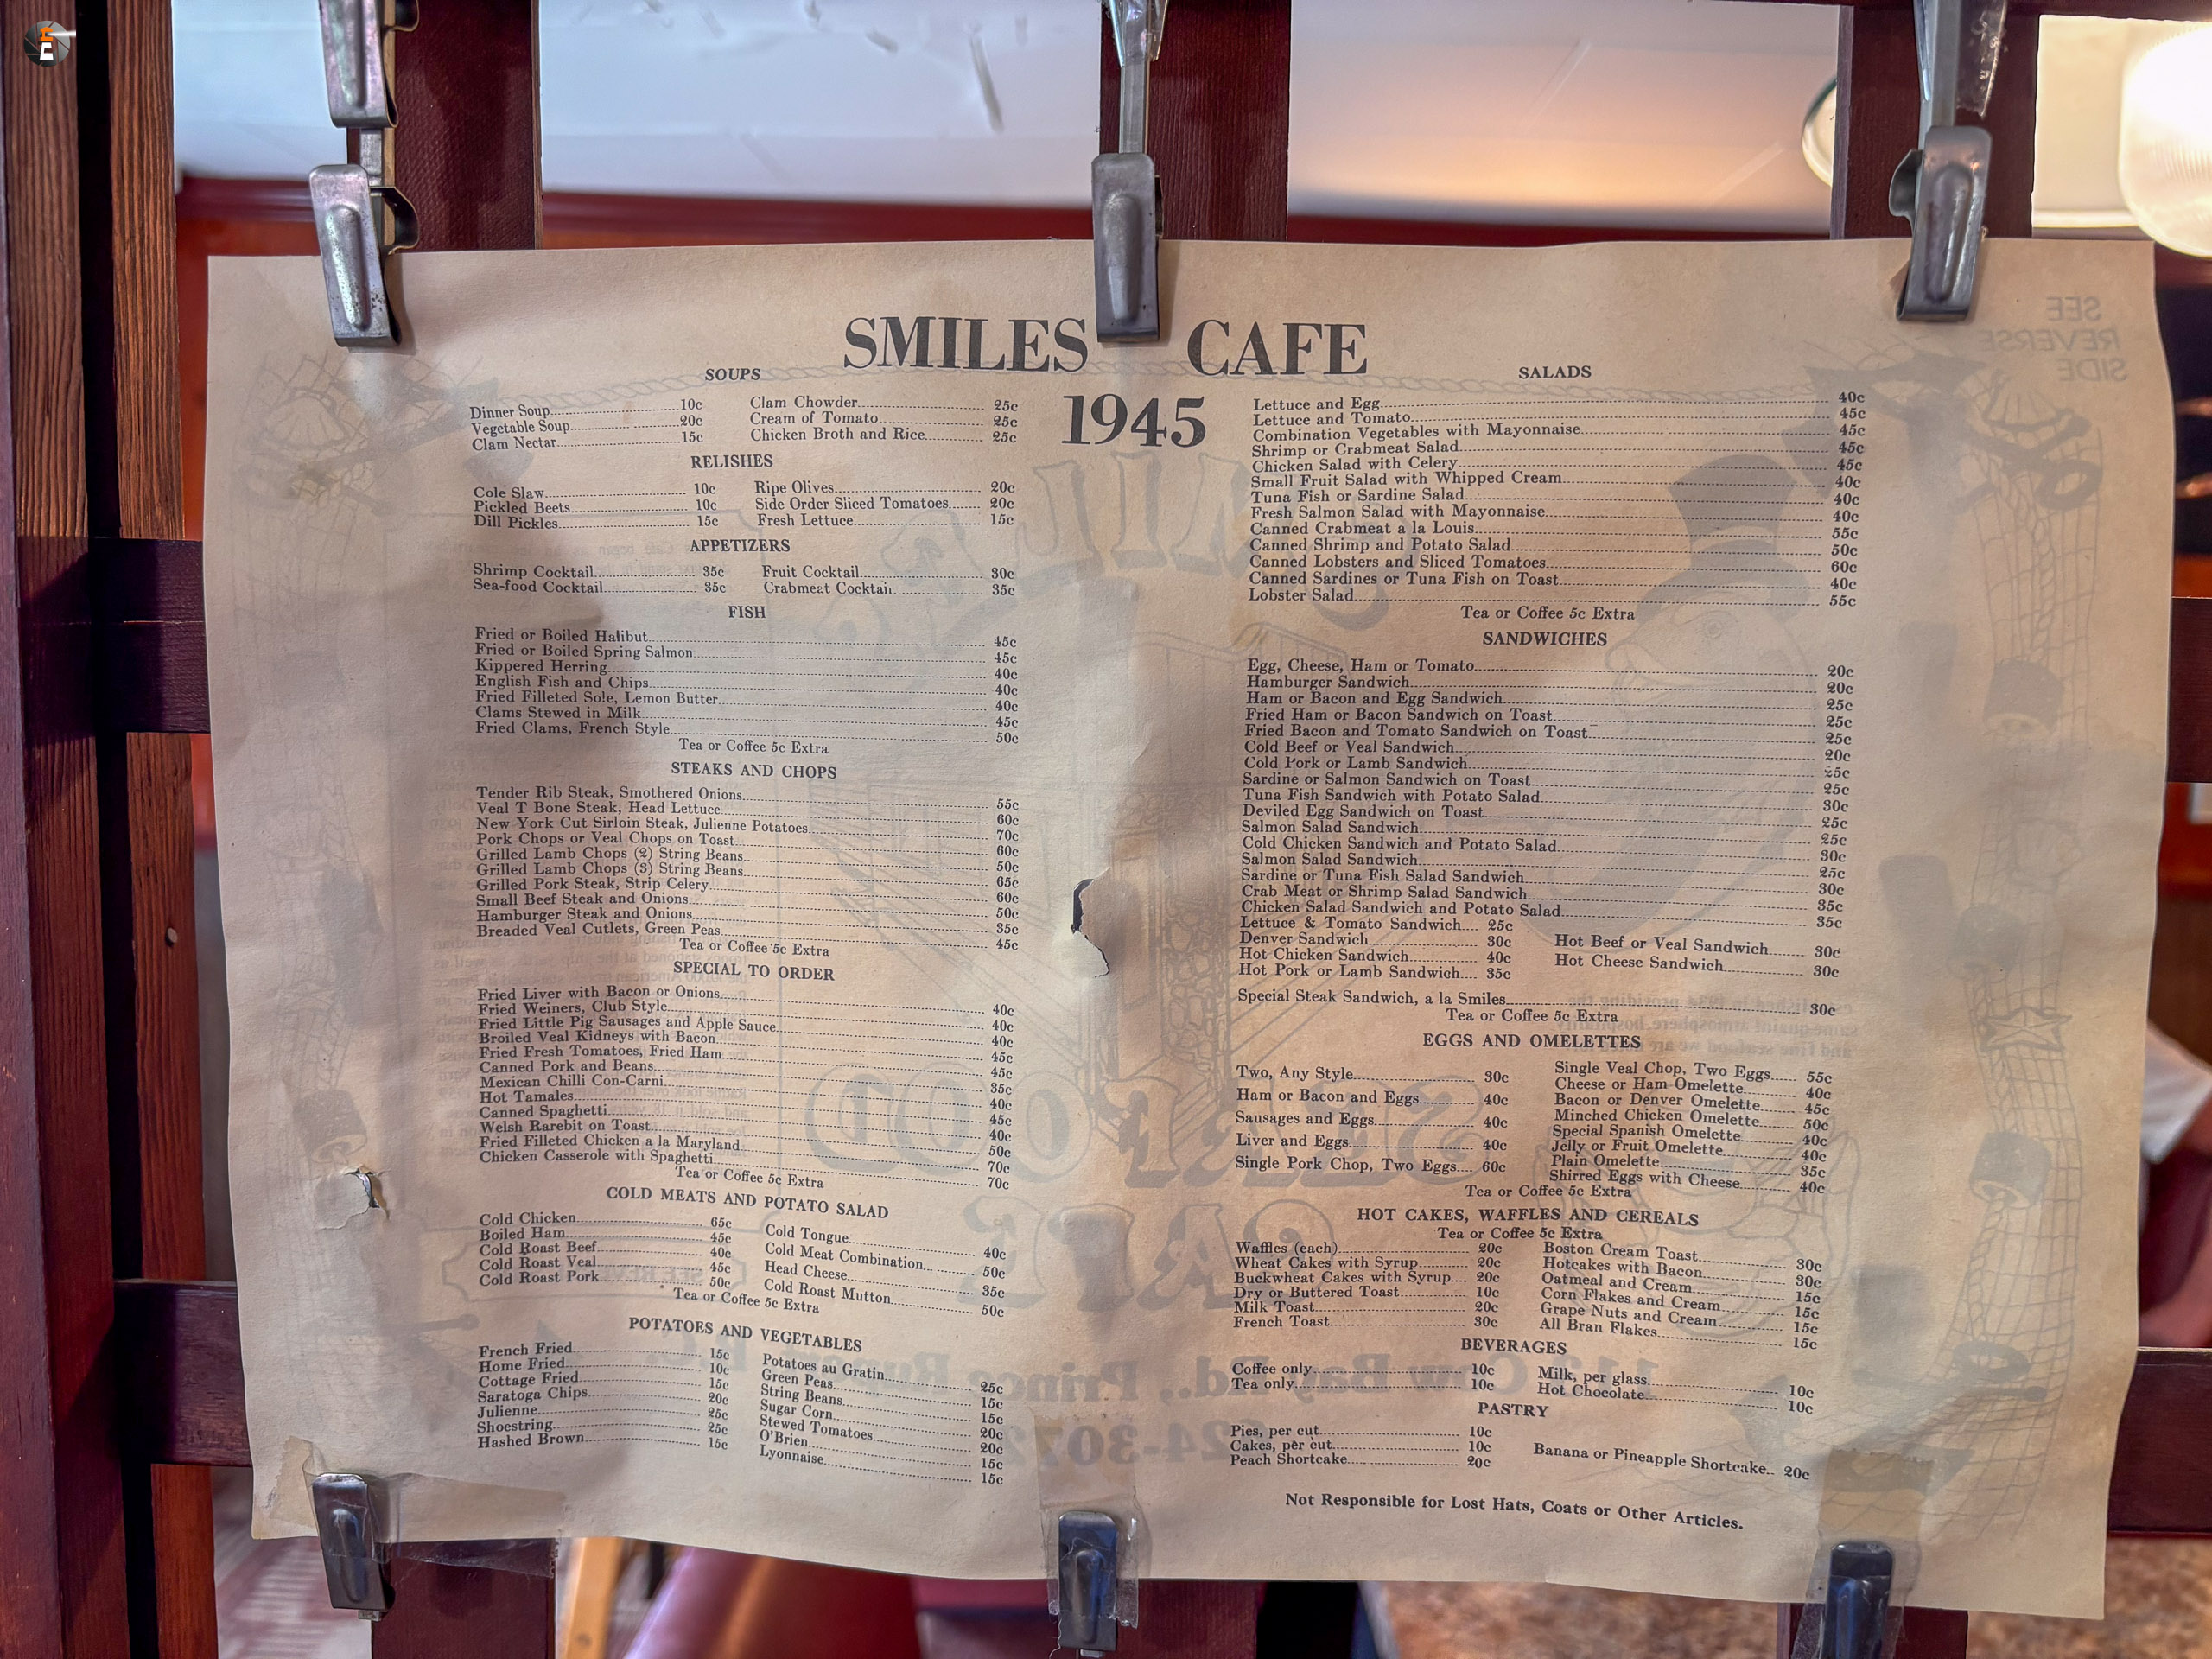 SMILES CAFE
1945
SOUPS
Dinner Soup 10c
Vegetable Soup 20c
Clam Nectar 15c
Clam Chowder 25c
Cream of Tomato 25c
Chicken Broth and Rice 25c
RELISHES
Cole Slaw 10c
Pickled Beets 10c
Dill Pickles 15c
Ripe Olives 20c
Side Order Sliced Tomatoes 20c
Fresh Lettuce 15c
APPETIZERS
Shrimp Cocktail 35c
Sea-food Cocktail 35c
Fruit Cocktail 30c
Crabmeat Cocktail 35c
FISH
Fried or Boiled Halibut 45c
Fried or Boiled Spring Salmon 45c
Kippered Herring 40c
English Fish and Chips 40c
Fried Filleted Sole, Lemon Butter 40c
Clams Stewed in Milk 45c
Fried Clams, French Style 50c
Tea or Coffee 5c Extra
STEAKS AND CHOPS
Tender Rib Steak, Smothered Onions 55c
Veal T Bone Steak, Head Lettuce 60c
New York Cut Sirloin Steak, Julienne Potatoes 70c
Pork Chops or Veal Chops on Toast 60c
Grilled Lamb Chops (2) String Beans 50c
Grilled Lamb Chops (3) String Beans 65c
Grilled Pork Steak, Strip Celery 60c
Small Beef Steak and Onions 50c
Hamburger Steak and Onions 35c
Breaded Veal Cutlets, Green Peas 45c
Tea or Coffee 5c Extra
SPECIAL TO ORDER
Fried Liver with Bacon or Onions 40c
Fried Weiners, Club Style 40c
Fried Little Pig Sausages and Apple Sauce 40c
Broiled Veal Kidneys with Bacon 45c
Fried Fresh Tomatoes, Fried Ham 45c
Canned Pork and Beans 35c
Mexican Chilli Con-Carni 40c
Hot Tamales 45c
Canned Spaghetti 40c
Welsh Rarebit on Toast 50c
Fried Filleted Chicken a la Maryland 70c
Chicken Casserole with Spaghetti 70c
Tea or Coffee 5c Extra
COLD MEATS AND POTATO SALAD
Cold Chicken 65c
Boiled Ham 45c
Cold Roast Beef 40c
Cold Roast Veal 45c
Cold Roast Pork 50c
Cold Tongue 40c
Cold Meat Combination 50c
Head Cheese 35c
Cold Roast Mutton 50c
Tea or Coffee 5c Extra
POTATOES AND VEGETABLES
French Fried 15c
Home Fried 10c
Cottage Fried 15c
Saratoga Chips 20c
Julienne 25c
Shoestring 25c
Hashed Brown 15c
Potatoes au Gratin 25c
Green Peas 15c
String Beans 15c
Sugar Corn 20c
Stewed Tomatoes 20c
O'Brien 15c
Lyonnaise 15c
SALADS
Lettuce and Egg 40c
Lettuce and Tomato 45c
Combination Vegetables with Mayonnaise 45c
Shrimp or Crabmeat Salad 45c
Chicken Salad with Celery 45c
Small Fruit Salad with Whipped Cream 40c
Tuna Fish or Sardine Salad 40c
Fresh Salmon Salad with Mayonnaise 40c
Canned Crabmeat a la Louis 55c
Canned Shrimp and Potato Salad 50c
Canned Lobsters and Sliced Tomatoes 60c
Canned Sardines or Tuna Fish on Toast 40c
Lobster Salad 55c
Tea or Coffee 5c Extra
SANDWICHES
Egg, Cheese, Ham or Tomato 20c
Hamburger Sandwich 20c
Ham or Bacon and Egg Sandwich 25c
Fried Ham or Bacon Sandwich on Toast 25c
Fried Bacon and Tomato Sandwich on Toast 25c
Cold Beef or Veal Sandwich 20c
Cold Pork or Lamb Sandwich 25c
Sardine or Salmon Sandwich on Toast 25c
Tuna Fish Sandwich with Potato Salad 30c
Deviled Egg Sandwich on Toast 25c
Salmon Salad Sandwich 25c
Cold Chicken Sandwich and Potato Salad 30c
Salmon Salad Sandwich 25c
Sardine or Tuna Fish Salad Sandwich 30c
Crab Meat or Shrimp Salad Sandwich 35c
Chicken Salad Sandwich and Potato Salad 35c
Lettuce & Tomato Sandwich 25c
Denver Sandwich 30c
Hot Chicken Sandwich 40c
Hot Pork or Lamb Sandwich 35c
Hot Beef or Veal Sandwich 30c
Hot Cheese Sandwich 30c
Special Steak Sandwich, a la Smiles 30c
Tea or Coffee 5c Extra
EGGS AND OMELETTES
Two, Any Style 30c
Ham or Bacon and Eggs 40c
Sausages and Eggs 40c
Liver and Eggs 40c
Single Pork Chop, Two Eggs 60c
Single Veal Chop, Two Eggs 55c
Cheese or Ham Omelette 40c
Bacon or Denver Omelette 45c
Minched Chicken Omelette 50c
Special Spanish Omelette 40c
Jelly or Fruit Omelette 40c
Plain Omelette 35c
Shirred Eggs with Cheese 40c
Tea or Coffee 5c Extra
HOT CAKES, WAFFLES AND CEREALS
Tea or Coffee 5c Extra
Waffles (each) 20c
Wheat Cakes with Syrup 20c
Buckwheat Cakes with Syrup 20c
Dry or Buttered Toast 10c
Milk Toast 20c
French Toast 30c
Boston Cream Toast 30c
Hotcakes with Bacon 30c
Oatmeal and Cream 15c
Corn Flakes and Cream 15c
Grape Nuts and Cream 15c
All Bran Flakes 15c
BEVERAGES
Coffee only 10c
Tea only 10c
Milk, per glass 10c
Hot Chocolate 10c
PASTRY
Pies, per cut 10c
Cakes, per cut 10c
Peach Shortcake 20c
Banana or Pineapple Shortcake 20c
Not Responsible for Lost Hats, Coats or Other Articles.
SEE
REVERSE
SIDE